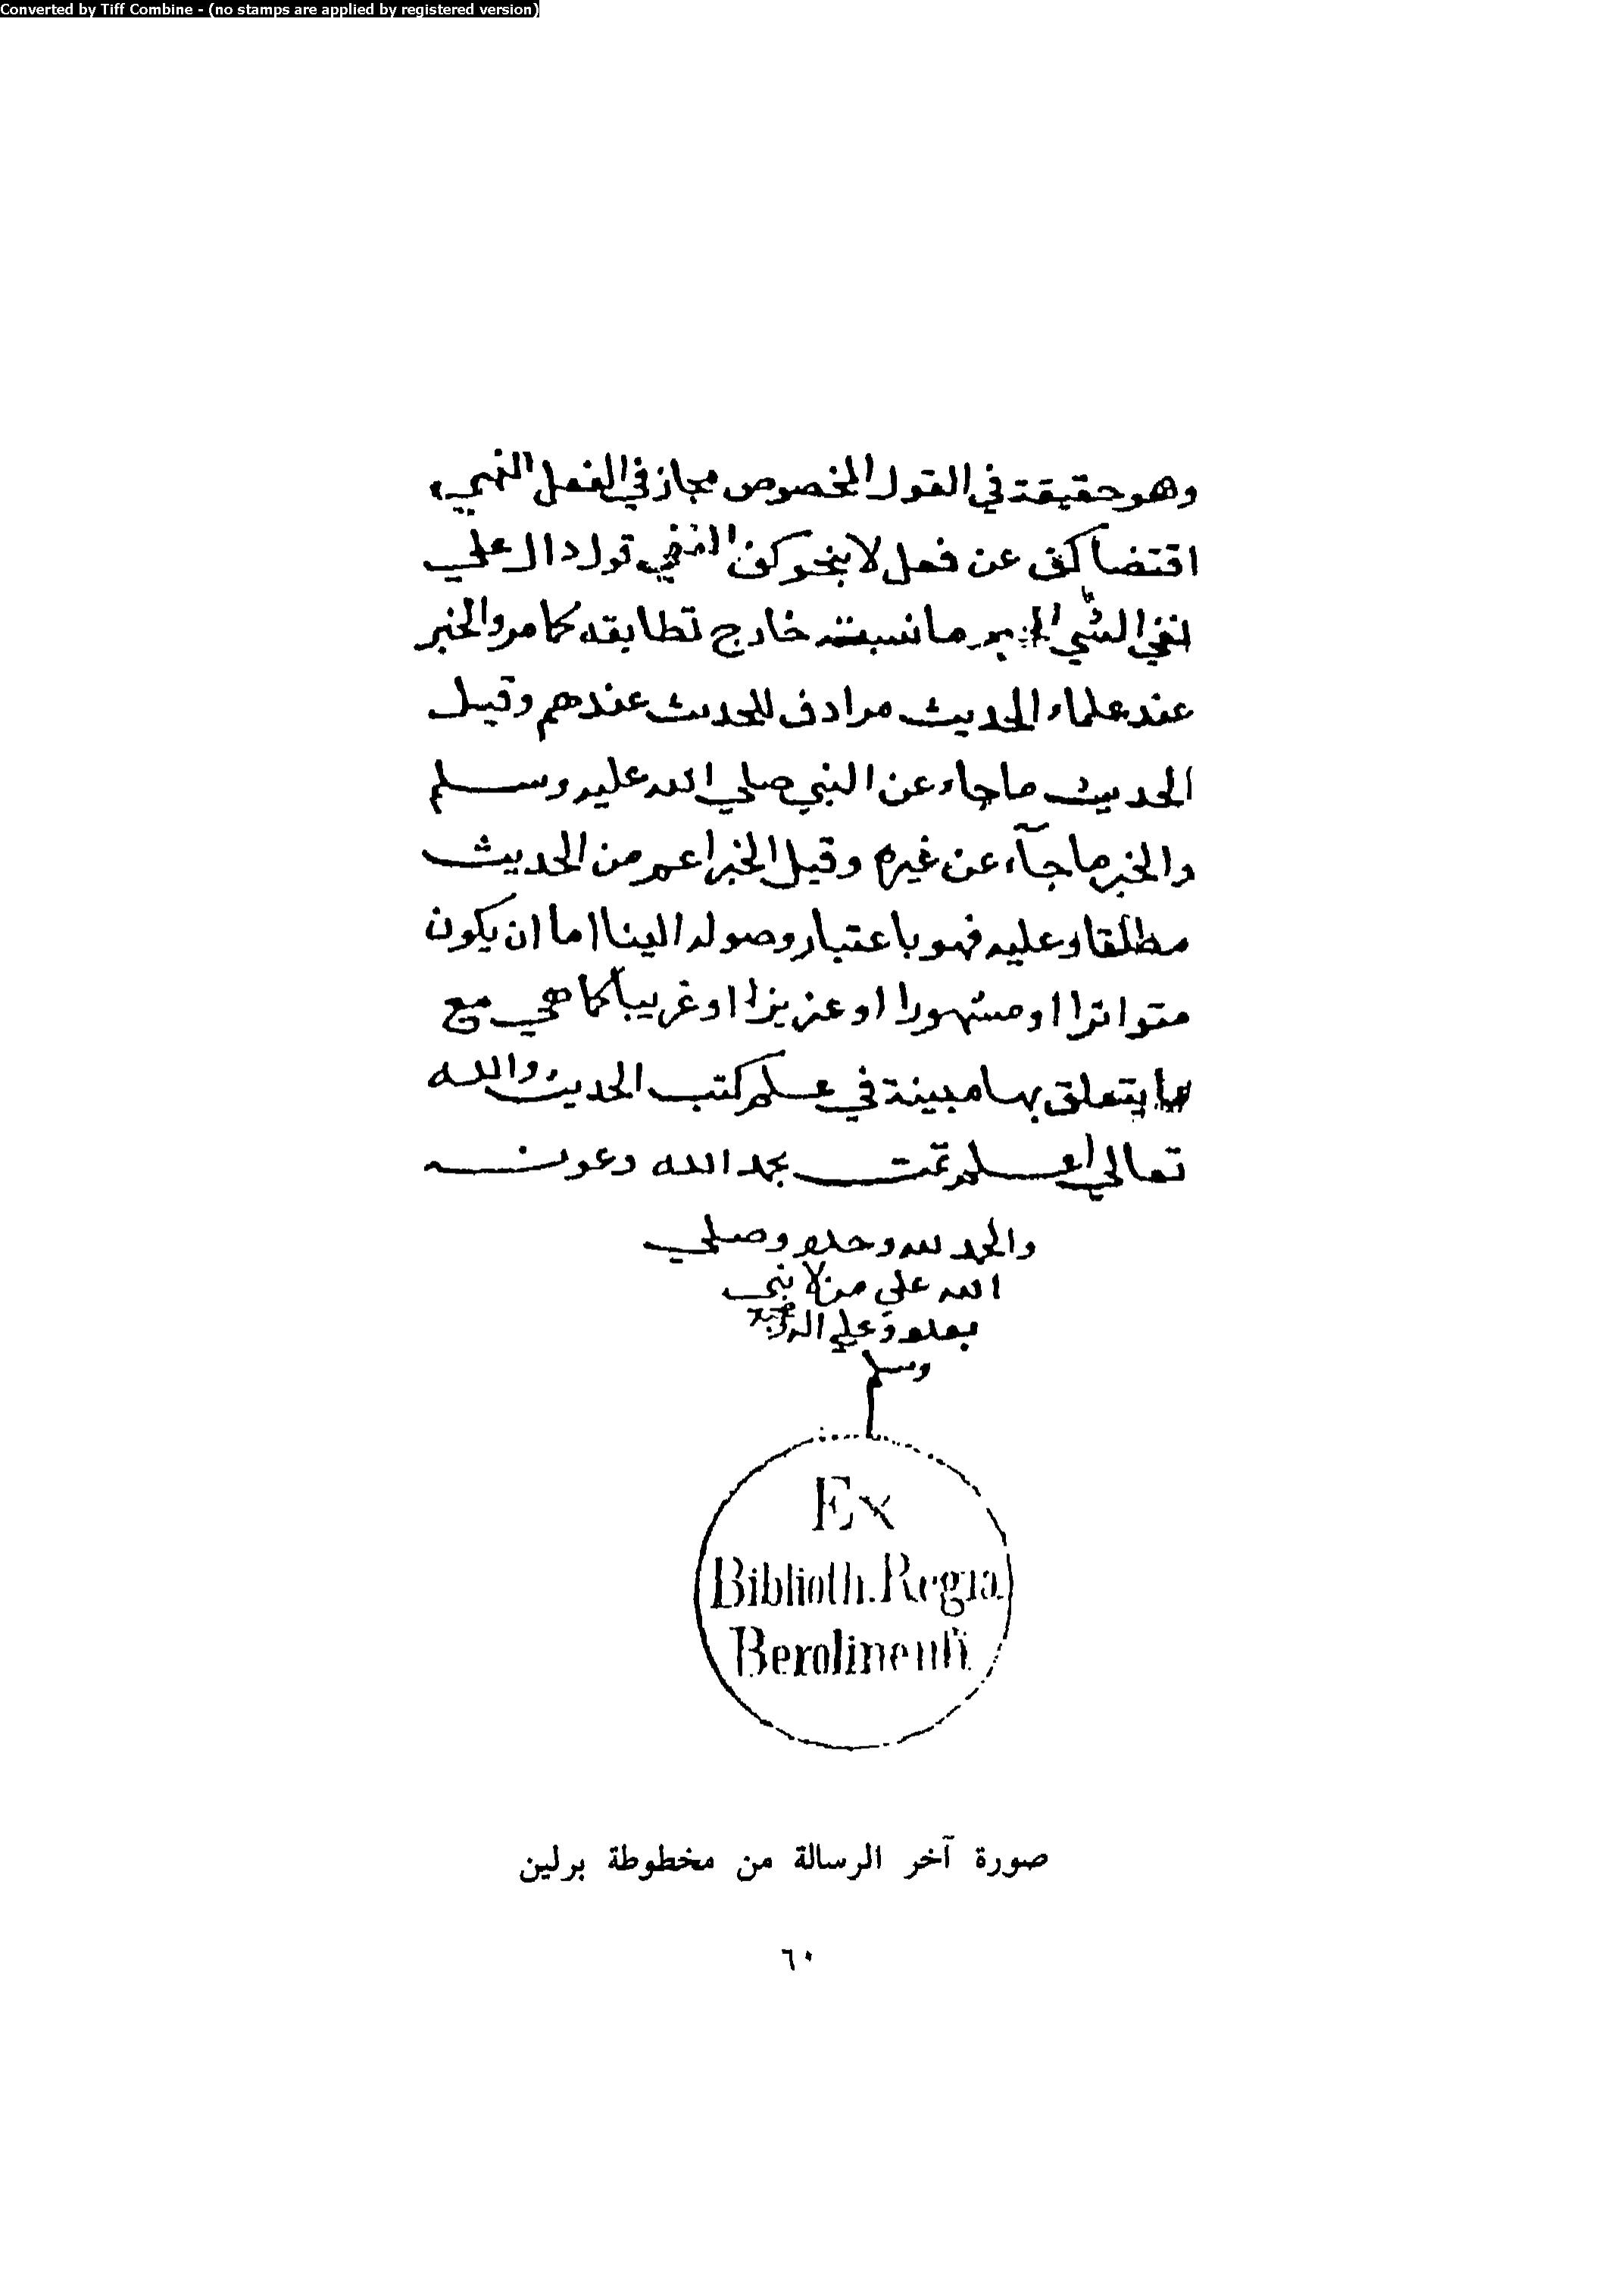 Converted by Tiff Combine - (no stamps are applied by registered version)
وهو حقيقة في القول المخصوص مجاز في الفعل النهي
اقتضا كف عن فعل لا بنحو كف النفي قول دال علي
نفي الشي الخبر ما نسبته خارج تطابقه كما مر والخبر
عند علماء الحديث مرادف للحديث عندهم وقيل
الحديث ما جاء عن النبي صلي الله عليه وسلم
والخبر ما جآء عن غيره وقيل الخبر اعم من الحديث
مطلقا وعليه فهو باعتبار وصوله الينا اما ان يكون
متواترا او مشهورا او عزيزا او غريبا كما هي مع
ما يتعلق بها مبينة في علم كتب الحديث والله
تعالي اعلم تمت بحمد الله وعونه
والحمد لله وحده وصلي
الله علي من لا نبي
بعده وعلي اله وصحبه
وسلم
Ex
Biblioth. Regia
Berolinensi.
صورة آخر الرسالة من مخطوطة برلين
٦٠